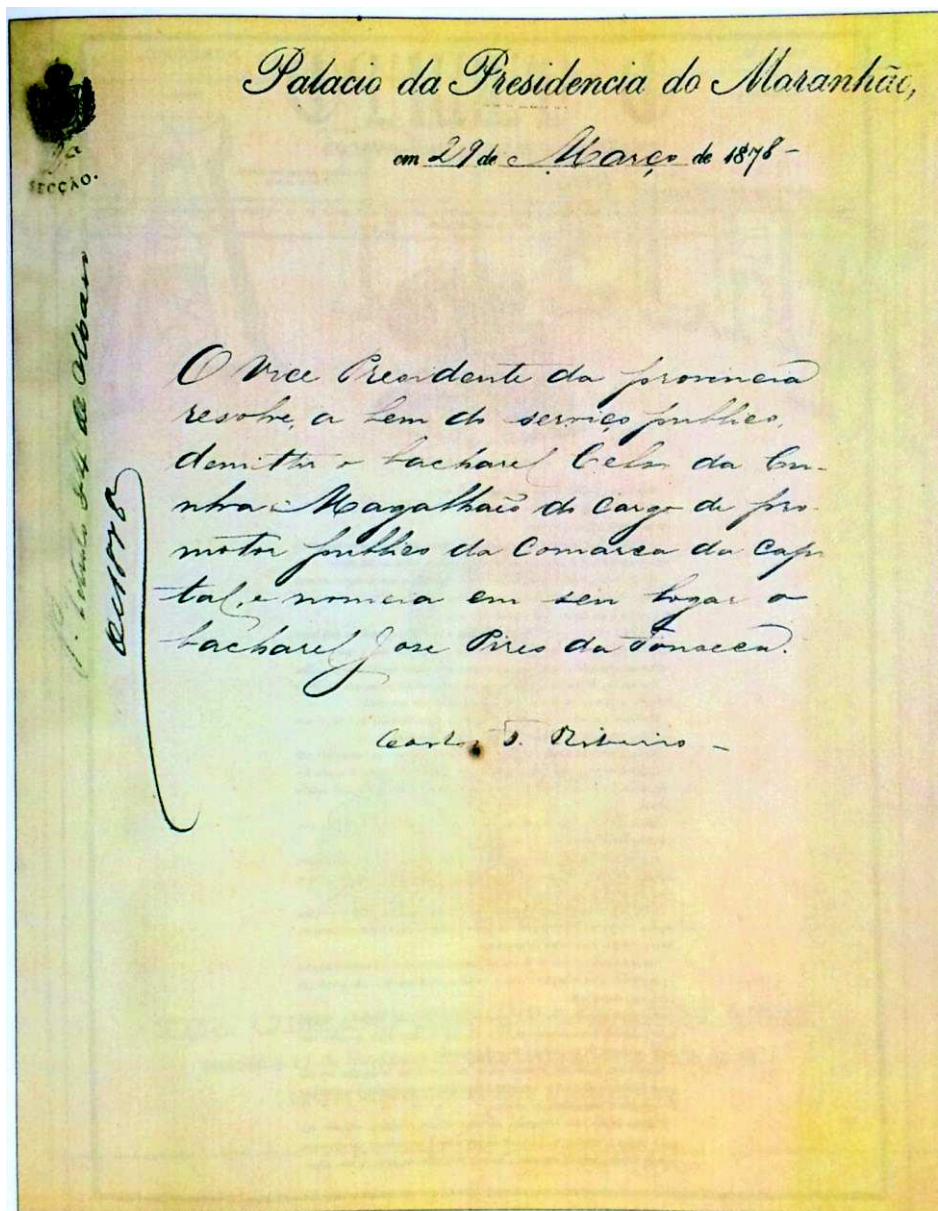 Palacio da Presidencia do Maranhão,
em 29 de Março de 1878-
SECÇÃO.
O Vice Presidente da provincia
resolve, a bem do serviço publico,
demittir o bacharel Celso da Cu-
nha Magalhães do cargo de pro-
motor publico da Comarca da Capi
tal, e nomeia em seu logar o
bacharel Jose Pires da Fonseca.
Carlos F. Ribeiro -
de 1878